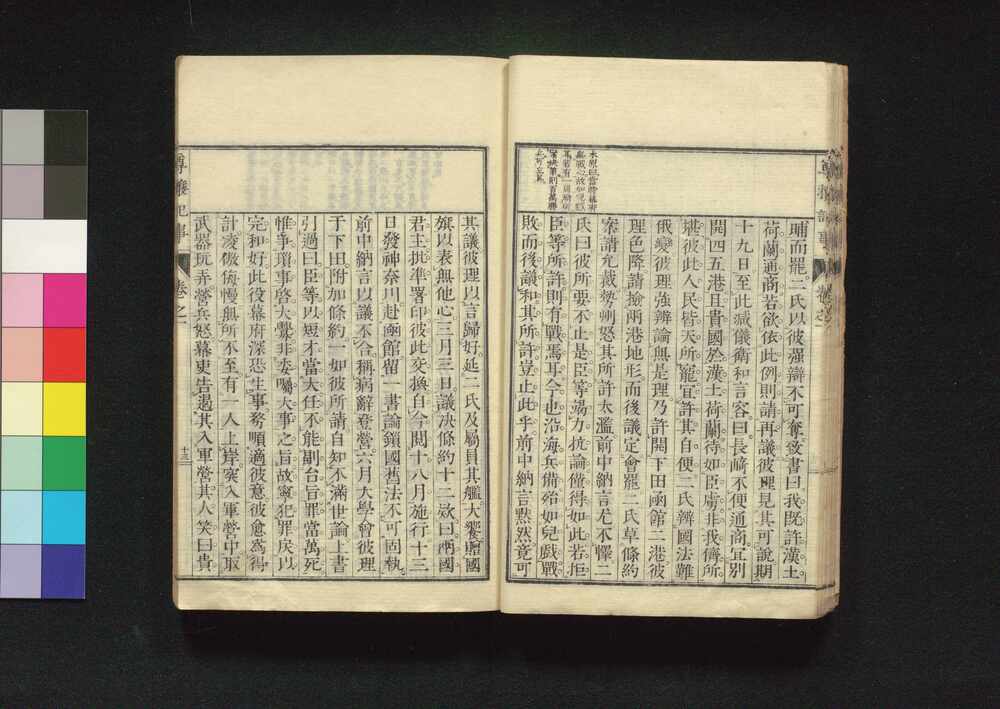 晡而罷。二氏以彼强辯不可奪。致書曰。我既許漢土
荷蘭通商。若欲依此例。則請再議。彼理見其可說。期
十九日至此。減儀衛。和言容。曰。長﨑不便通商。宜別
開四五港。且貴國於漢土荷蘭。待如臣虜。非我儕所
堪。彼此人民。皆天所寵。宜許其自便。二氏辨國法難
俄變。彼理強辨論無是理。乃許開下田函館二港。彼
理色降。請撿兩港地形。而後議定。會罷。二氏草條約
案請允裁。勢州怒其所許太濫。前中納言尤不懌。二
氏曰。彼所要不止是。臣等竭力抗論。僅得如此。若拒
臣等所許。則有戰焉耳。今也沿海兵備殆如兒戲。戰
敗而後議和。其所許豈止此乎。前中納言默然。竟可
其議。彼理以言歸好。延二氏及屬員其艦。大饗。贈國
旗以表無他心。三月三日。議決條約十二款。曰。兩國
君主批準署印。彼此交換。自今閱十八月施行。十三
日發神奈川。赴函館。留一書。論鎖國舊法不可固執。
前中納言以議不合。稱病辭登營。六月大學會彼理
于下田。附加條約。一如彼所請。自知不滿世論。上書
引過曰。臣等以短才當大任。不能副台旨。罪當萬死。
惟事瑣事啓大釁。非委囑大事之旨。故寧犯罪戾。以
完和好。此役幕府深恐生事。務順適彼意。彼愈爲得
計。凌傲侮慢。無所不至。有一人上岸。突入軍營中。取
武器玩弄。營兵怒。幕吏告過其入軍營。其人笑曰。貴
尊攘紀事
卷之一
十三